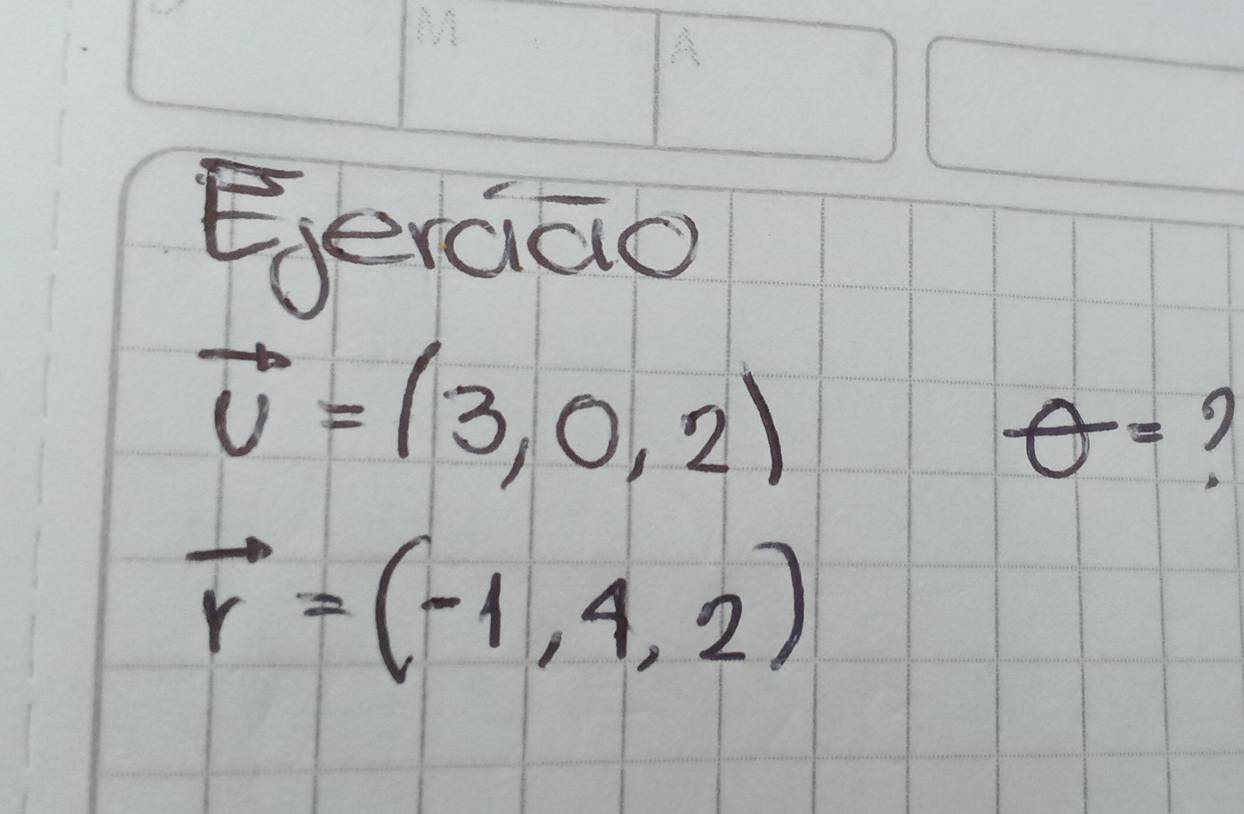 M A
Ejercicio
→u = (3, 0, 2) θ = ?
→r = (-1, 4, 2)